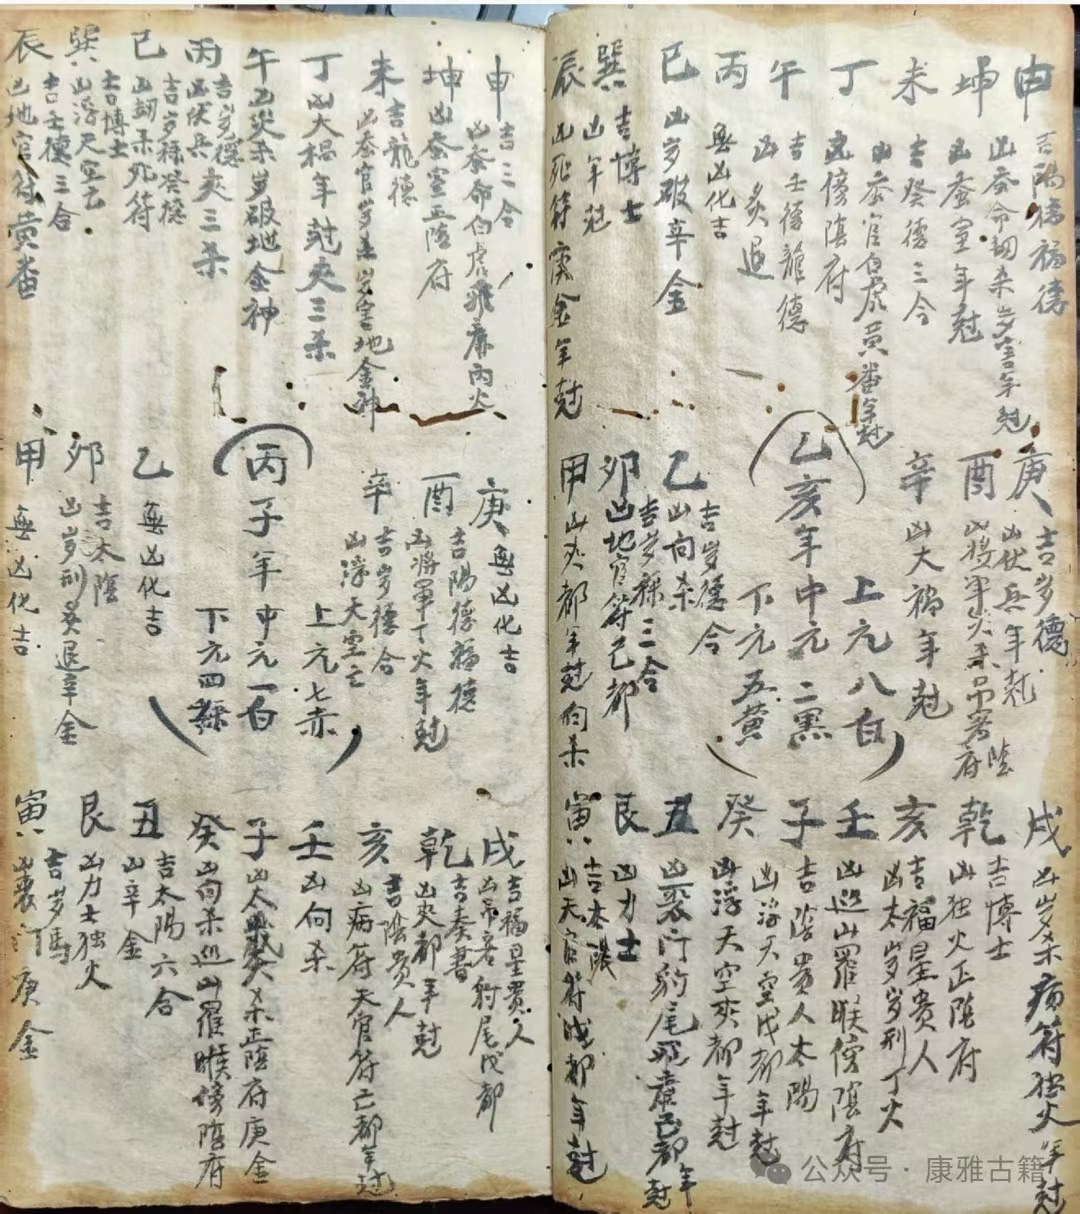 申
吉陽德福德
凶蚕命劫杀岁害年尅
坤
凶蚕室年尅
未
吉癸德三合
凶蚕官白虎黄番年尅
丁
凶傍陰府
午
吉壬德龍德
凶炙退
丙
無凶化吉
巳
凶岁破辛金
巽
吉博士
凶年尅
辰
凶死符庚金年尅
庚
吉岁德
凶伏兵年尅
酉
凶将軍灾杀吊客陰府
辛
凶大禍年尅
乙亥年
上元八白
中元二黑
下元五黄
乙
吉岁德合
凶向杀
卯
吉岁祿三合
凶地官符己都
甲
凶灾都年尅向杀
戌
凶岁杀病符独火年尅
乾
吉博士
凶独火正陰府
亥
吉福星贵人
凶太岁岁刑丁火
壬
凶巡山羅睺傍陰府
子
吉陰贵人太陽
凶浮天空戊都年尅
癸
凶浮天空灾都年尅
丑
凶丧门豹尾飛廉己都年尅
艮
凶力士
寅
吉太陽
凶天官符戊都年尅
申
吉三合
凶蚕命白虎飛廉丙火
坤
凶蚕室正陰府
未
吉龍德
凶蚕官岁杀岁害地金神
丁
凶大禍年尅夾三杀
午
凶灾杀岁破地金神
丙
吉岁德
凶伏兵夾三杀
巳
吉岁祿癸德
凶劫杀死符
巽
吉博士
凶浮天空亡
辰
吉壬德三合
凶地官符黄番
庚
無凶化吉
酉
吉陽德福德
凶将軍丁火年尅
辛
吉岁德合
凶浮天空亡
丙子年
上元七赤
中元一白
下元四綠
乙
無凶化吉
卯
吉太陰
凶岁刑炙退辛金
甲
無凶化吉
戌
吉福星贵人
凶吊客豹尾戊都
乾
吉奏書
凶灾都年尅
亥
吉陰贵人
凶病符天官符己都年尅
壬
凶向杀
子
凶太岁正陰府庚金
癸
凶向杀巡山羅睺傍陰府
丑
吉太陽六合
凶辛金
艮
凶力士独火
寅
吉岁馬
凶丧门庚金
公众号·康雅古籍